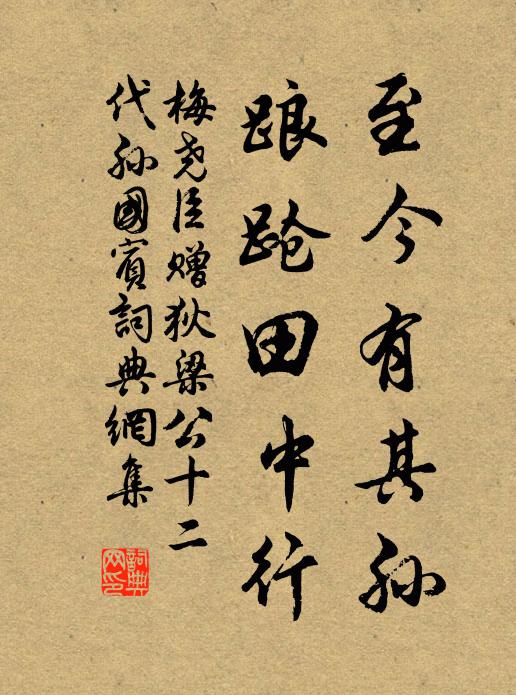 至今有其孙
踉跄田中行
梅尧臣赠狄梁公十二
代孙國賓詞典網集
詞典
网印